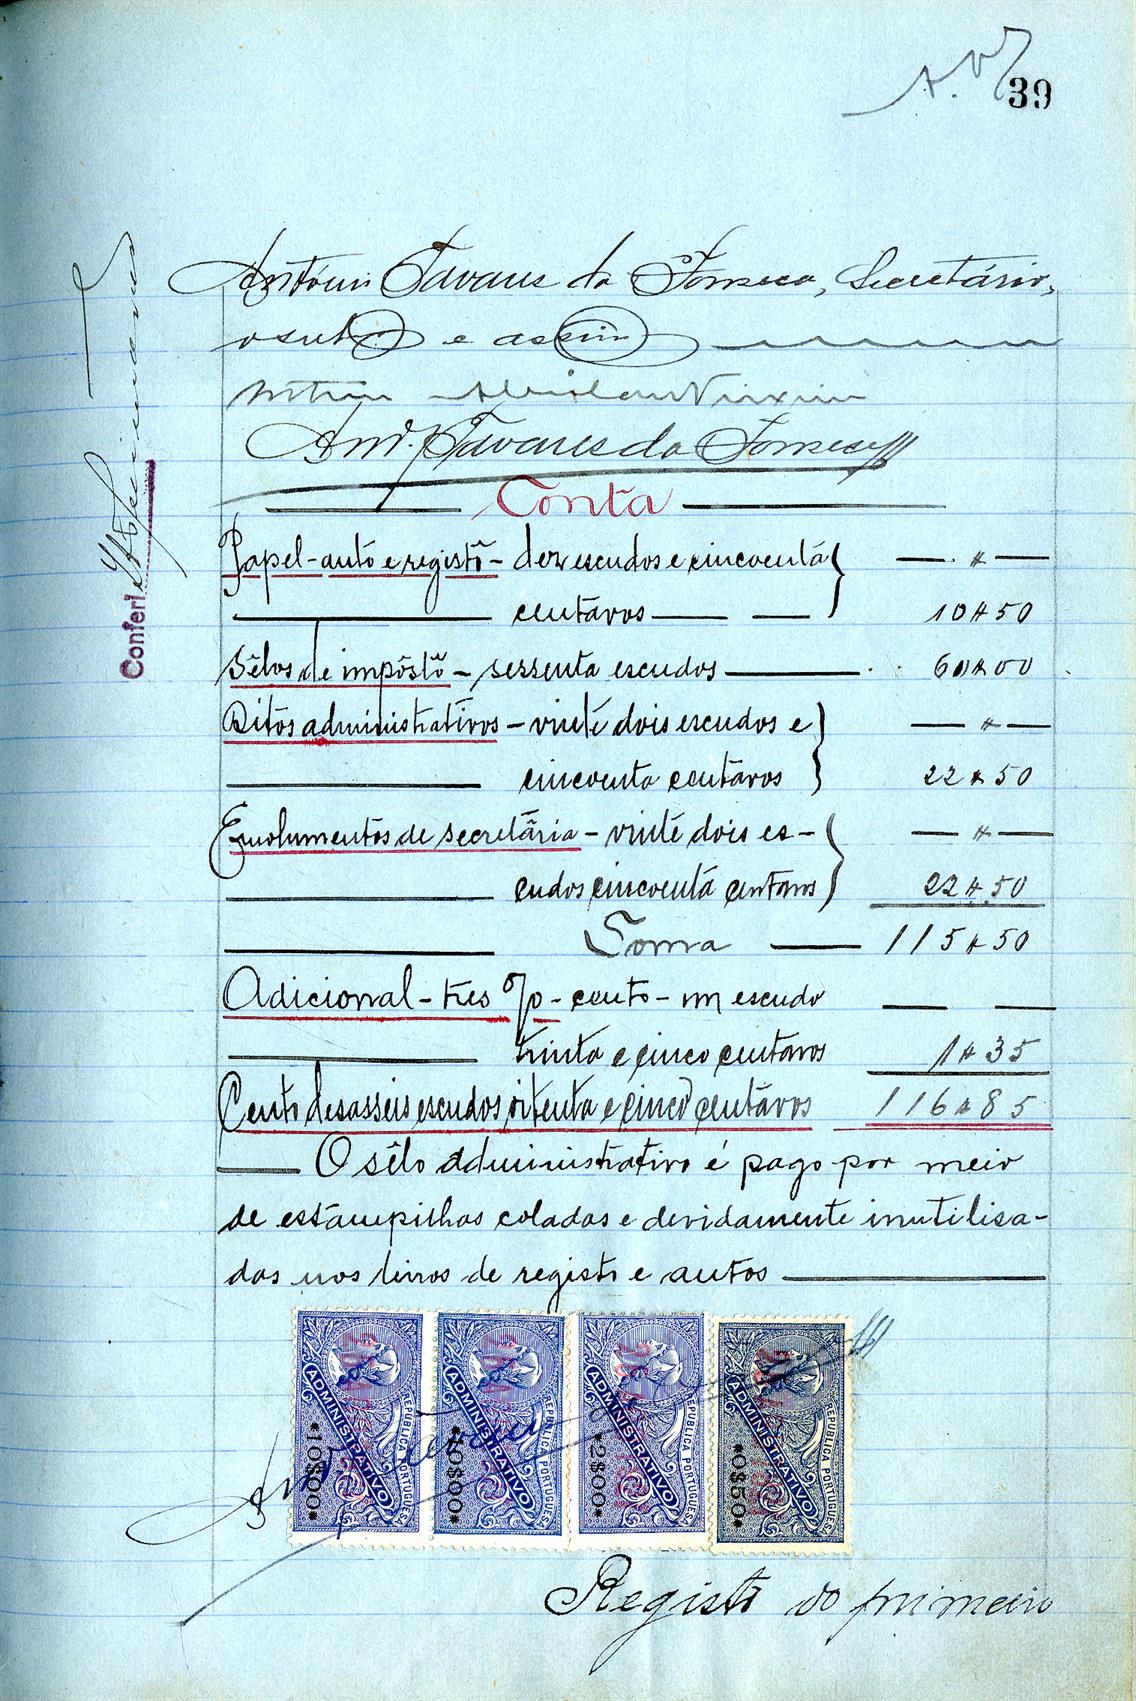 39
António Tavares da Fonseca, Secretário,
e assim
Antº. Tavares da Fonseca
Conta
Papel - auto e registo - dez escudos e cincoenta
centavos 10$50
Sêlos de impôsto - sessenta escudos 60$00
Ditos administrativos - vinte dois escudos e
cincoenta centavos 22$50
Emolumentos de secretária - vinte dois es-
cudos cincoenta centavos 22$50
Soma 115$50
Adicional - três % - cento - um escudo
trinta e cinco centavos 1$35
Cento desasseis escudos oitenta e cinco centavos 116$85
O sêlo administrativo é pago por meio
de estampilhas coladas e devidamente inutilisa-
das nos livros de registo e autos
REPUBLICA PORTUGUESA ADMINISTRATIVO *10$00*
REPUBLICA PORTUGUESA ADMINISTRATIVO *10$00*
REPUBLICA PORTUGUESA ADMINISTRATIVO *2$00*
REPUBLICA PORTUGUESA ADMINISTRATIVO *0$50*
Antº Tavares
Registo do primeiro
Conferi